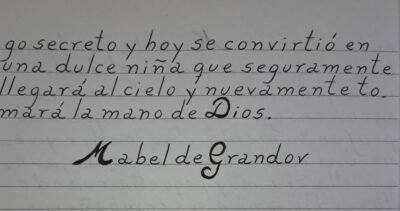 go secreto y hoy se convirtió en
una dulce niña que seguramente
llegará al cielo y nuevamente to_
mará la mano de Dios.
Mabel de Grandov